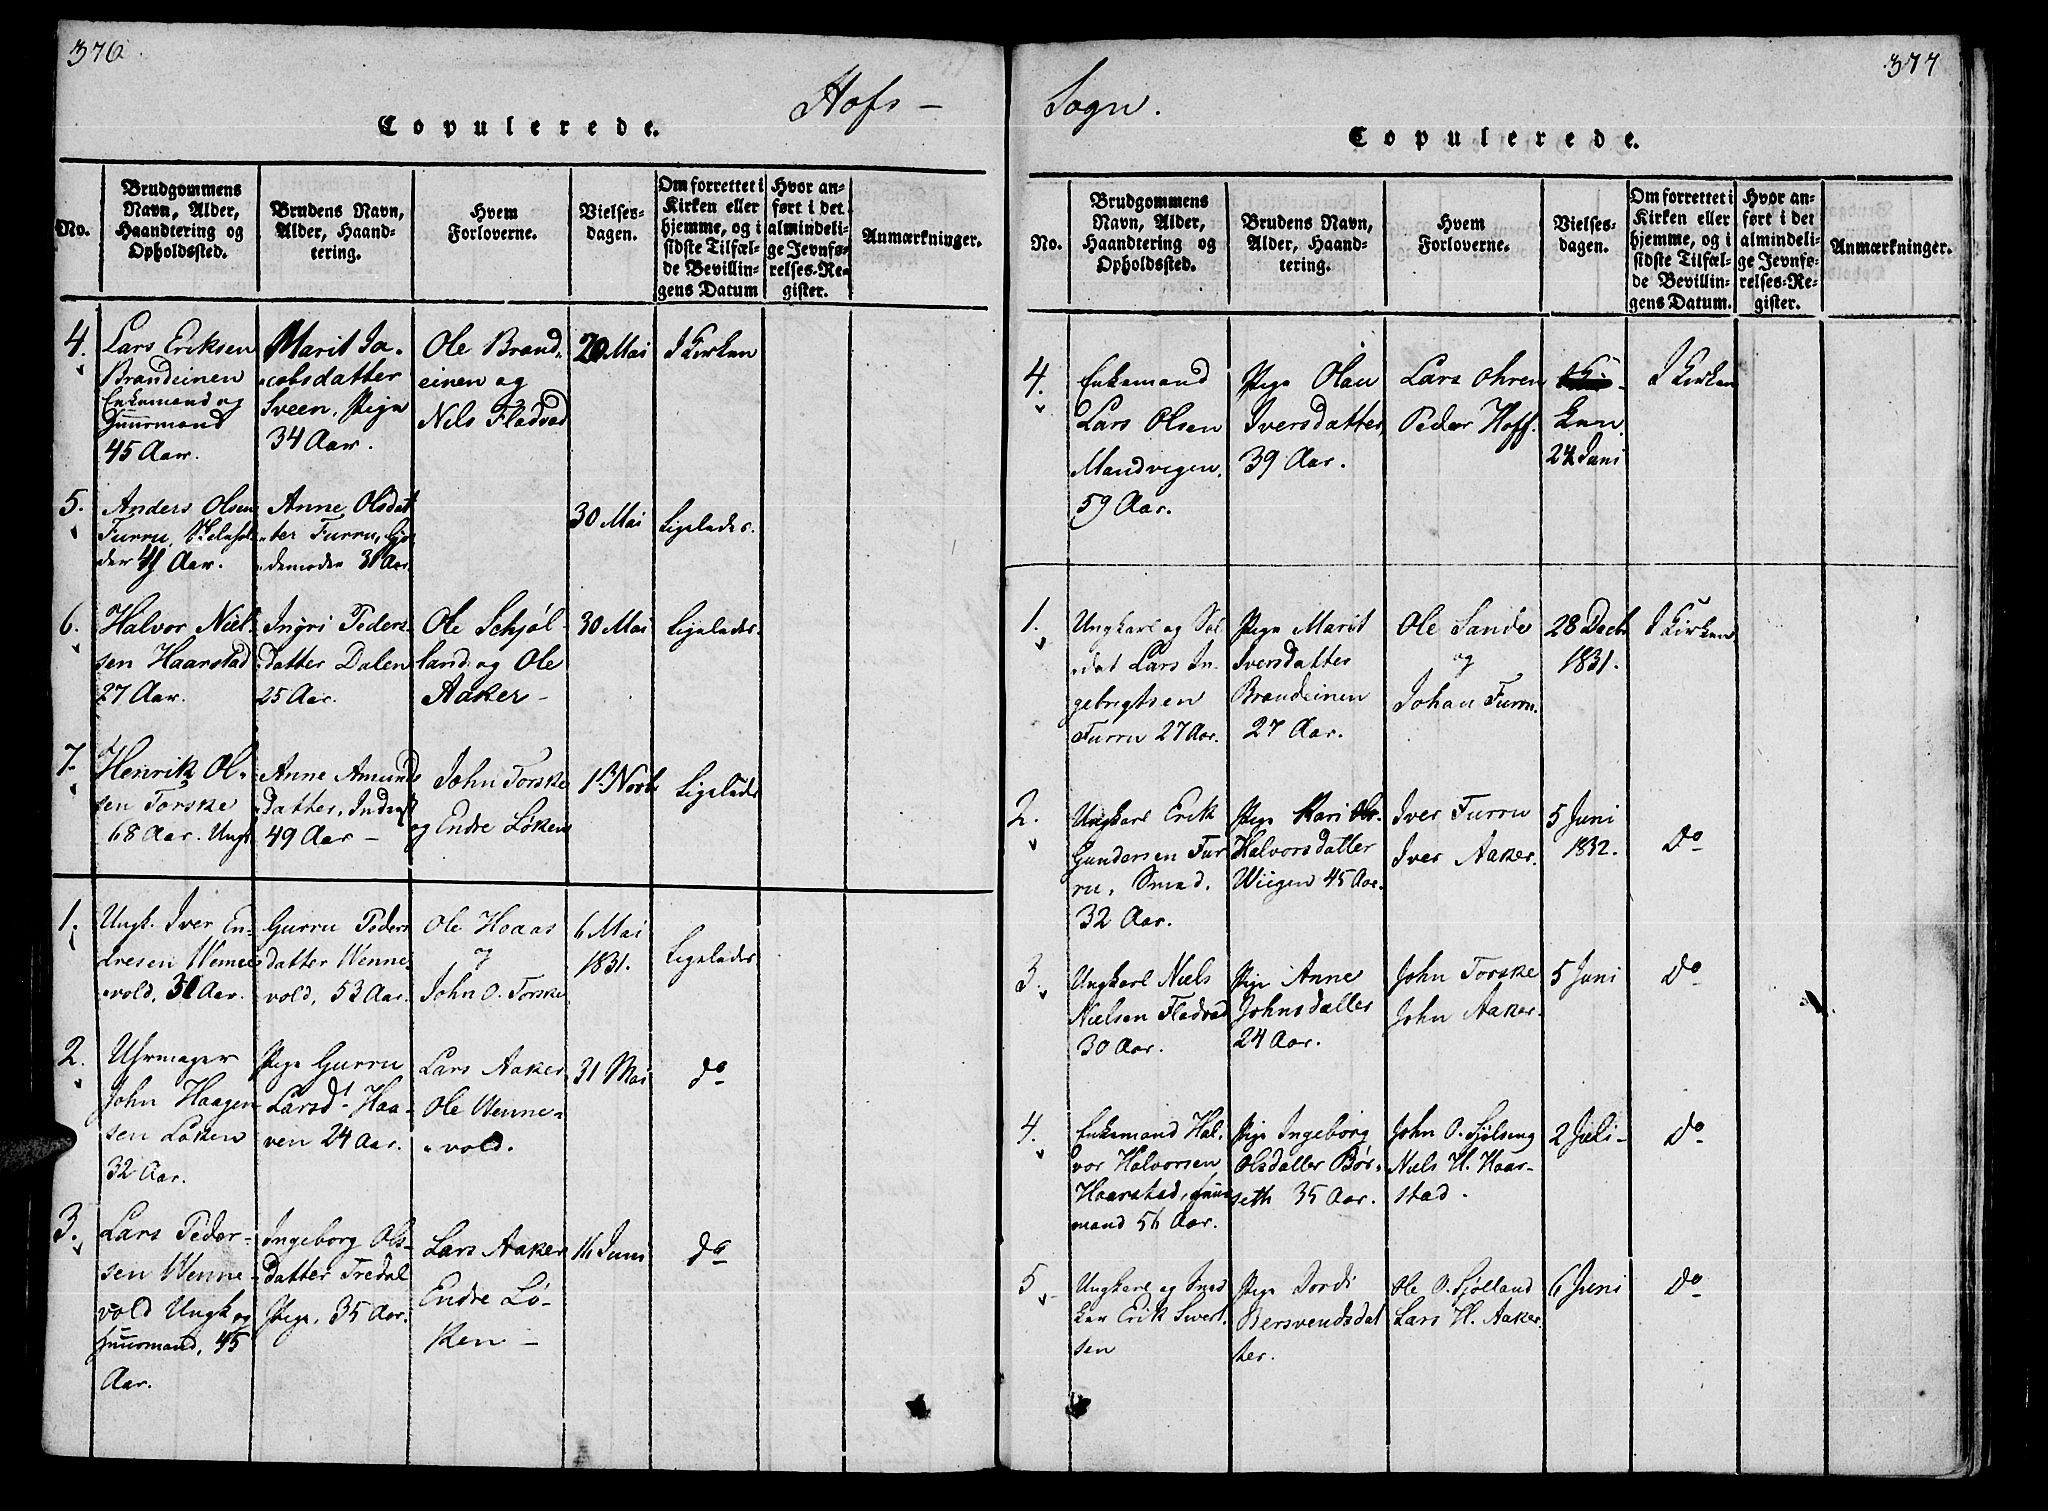 376
Hofs —
Copulerede.
No.
Brudgommens
Navn, Alder,
Haandtering og
Opholdssted.
Brudens Navn,
Alder, Haand-
tering.
Hvem
Forloverne.
Vielses-
dagen.
Om forrettet i
Kirken eller
hjemme, og i
sidste Tilfæl-
de Bevillin-
gens Datum
Hvor an-
ført i det
almindeli-
ge Jevnfø-
relses-Re-
gister.
Anmærkninger.
4.
Lars Eriksen
Brandeinen
Enkemand og
Huusmand
45 Aar.
Marit Ja-
cobsdatter
Sveen, Pige
34 Aar.
Ole Brand-
einen og
Nils Fladvad
20 Mai
I Kirken
5.
Anders Olsen
Furru,
der Aar.
Anne Olsdat
ter Furru,
demoder Aar
30 Mai
Ligeledes.
6.
Halvor Niel-
sen Haarstad
27 Aar.
Ingri Peders-
datter Dalen
25 Aar.
Ole Schjøl-
land og Ole
Aaker —
30 Mai
Ligeledes.
7.
Henrik Ol-
sen Torske
68 Aar. Ungk
Anne Amunds
datter,
49 Aar —
John Torske
og Endre Løken
1 Novb
Ligeledes
1.
Ungk. Iver En-
dresen Wenne-
vold, Aar.
Gurru Peders
datter Wenne-
vold, 53 Aar.
Ole Haaas
og
John O. Torske
6 Mai
1831.
Ligeledes
2.
Uhrmager
John Haagen-
sen Løken
32 Aar.
Pige Gurru
Larsd. Haa-
ven 24 Aar.
Lars Aaker
Ole Wenne-
vold.
31 Mai
do
3.
Lars Peder-
sen Wenne-
vold Ungk og
Huusmand, 45
Aar.
Ingeborg Ols-
datter Tredal
Pige, 35 Aar.
Lars Aaker
Endre Lø-
ken —
16 Juni
do
377
Sogn.
Copulerede.
No.
Brudgommens
Navn, Alder,
Haandtering og
Opholdssted.
Brudens Navn,
Alder, Haand-
tering.
Hvem
Forloverne.
Vielses-
dagen.
Om forrettet i
Kirken eller
hjemme, og i
sidste Tilfæl-
de Bevillin-
gens Datum.
Hvor an-
ført i det
almindeli-
ge Jevnfø-
relses-Re-
gister.
Anmærkninger.
4.
Enkemand
Lars Olsen
Mandvigen,
59 Aar.
Pige Olau
Iversdatter,
39 Aar.
Lars Ohren
Peder Hoff.
24 Juni
I Kirken
1.
Ungkarl og Sol-
dat Lars In-
gebrigtsen
Furru 27 Aar.
Pige Marit
Iversdatter
Brandeinen
27 Aar.
Ole Sande
og
Johan Furru.
28 Decbr
1831.
I Kirken
2.
Ungkarl Erik
Gundersen Fur
ru, Smed,
32 Aar.
Pige Kari
Halvorsdatter
Wiigen 45 Aar.
Iver Furru
Iver Aaker.
5 Juni
1832.
Do
3.
Ungkarl Niels
Nielsen Fladvad
30 Aar.
Pige Anne
Johnsdatter
24 Aar.
John Torske
John Aaker.
5 Juni
Do
4.
Enkemand Hal-
vor Halvorsen
Haarstad, Huus
mand 56 Aar.
Pige Ingeborg
Olsdatter Bør-
seth 35 Aar.
John O.
Niels H. Haar-
stad.
2 Juli —
Do
5
Ungkarl og
Erik Sivert-
sen
Pige Dordi
Bersvendsdat
ter.
Ole O. Sjølland
Lars H. Aaker.
6 Juni
Do